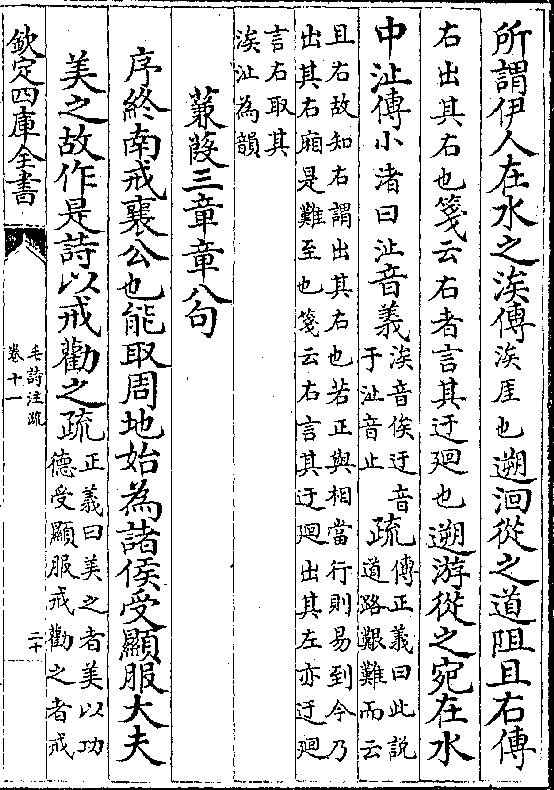 所謂伊人在水之涘傳涘厓也遡洄從之道阻且右傳
右出其右也箋云右者言其迂廻也遡游從之宛在水
中沚傳小渚曰沚音義涘音俟迂音
于沚音止疏傳正義曰此説
道路艱難而云
且右故知右謂出其右也若正與相當行則易到今乃
出其右廂是難至也箋云右言其迂廻出其左亦迂廻
言右取其
涘沚為韻
蒹葭三章章八句
序終南戒襄公也能取周地始為諸侯受顯服大夫
美之故作是詩以戒勸之疏正義曰美之者美以功
德受顯服戒勸之者戒
欽定四庫全書
毛詩注疏
卷十一
二十